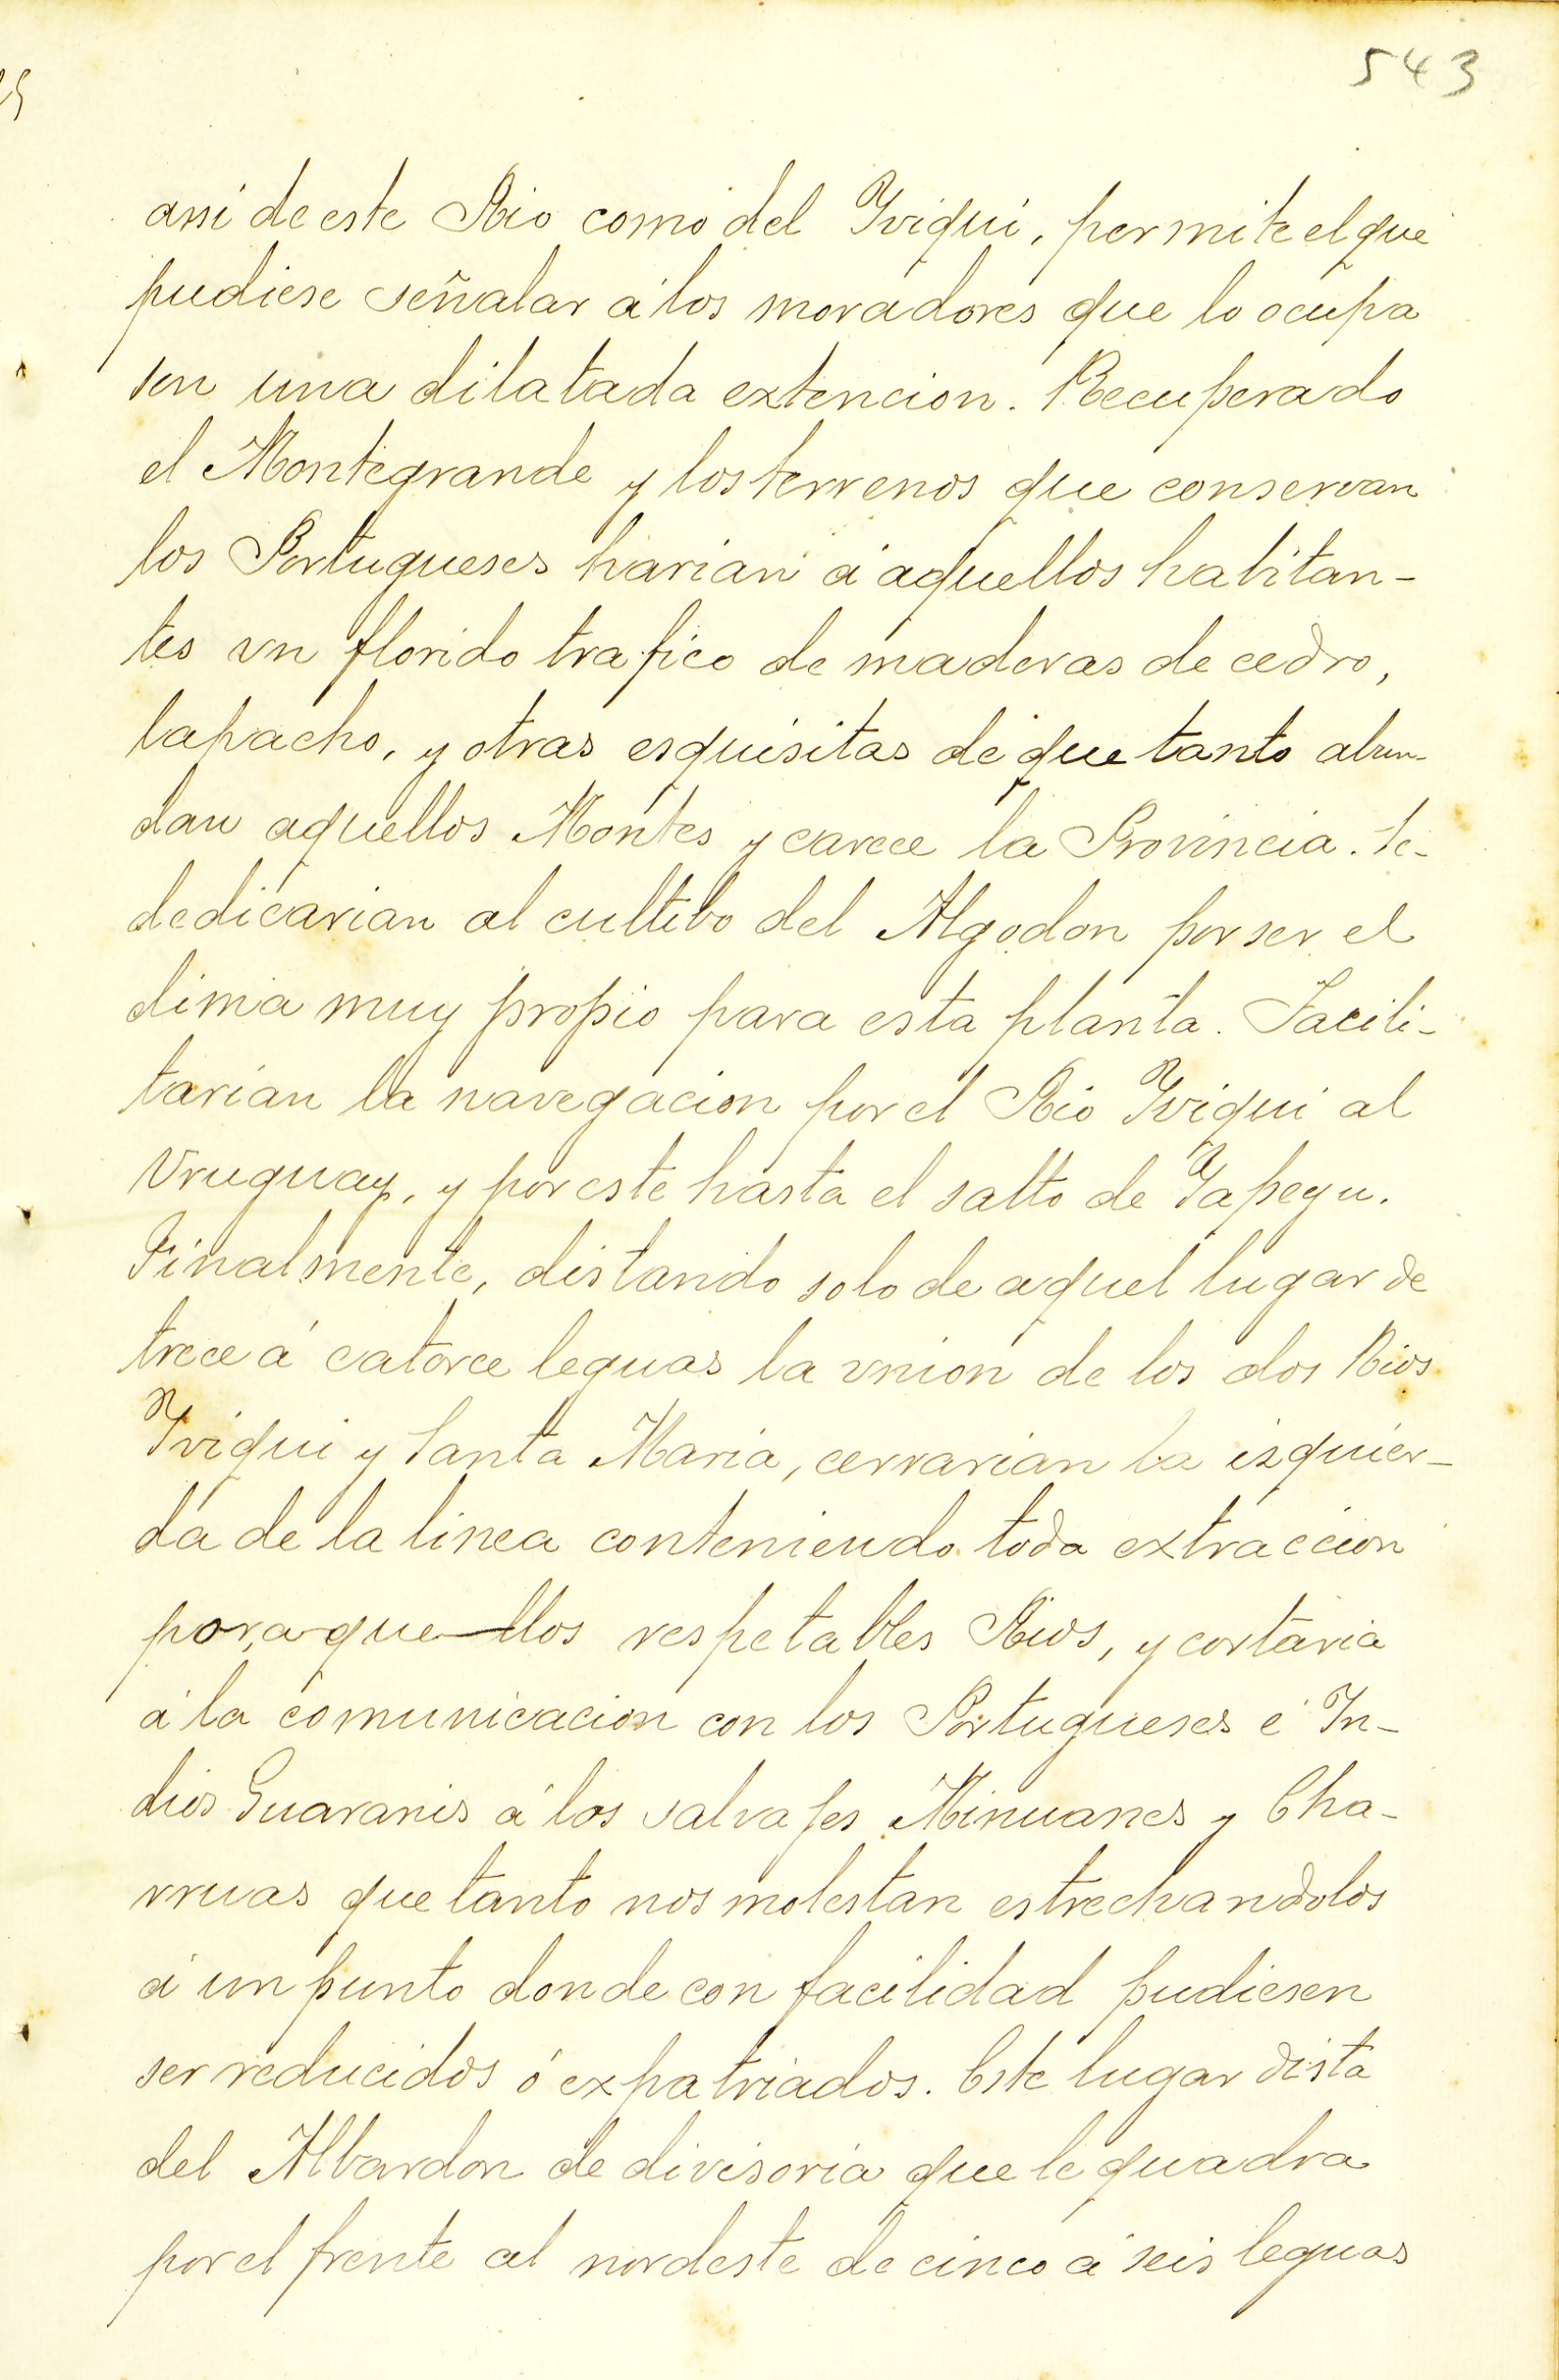 543
assi de este Rio como del Yviqui, permite el que
pudiese señalar á los moradores que lo ocupa
sen una dilatada extencion. Recuperado
el Montegrande y los terrenos que conservan
los Portugueses harian á aquellos habitan-
tes vn florido trafico de maderas de cedro,
lapacho, y otras esquisitas de que tanto abun-
dan aquellos Montes y carece la Provincia. Se-
dedicarian al cultibo del Algodon por ser el
clima muy propio para esta planta. Facili-
tarian la navegacion por el Rio Yviqui al
Vruguay, y por este hasta el salto de Yapeyu.
Finalmente, distando solo de aquel lugar de
trece á catorce leguas la vnion de los dos Rios
Yviqui y Santa Maria, cerrarian la izquier-
da de la linea conteniendo toda extraccion
por aquellos respetables Rios, y cortaria
á la comunicacion con los Portugueses é In-
dios Guaranis á los salvajes Minuanes y Cha-
rruas que tanto nos molestan estrechandolos
á un punto donde con facilidad pudiesen
ser reducidos ó expatriados. Este lugar dista
del Albardon de divisoria que le quadra
por el frente al nordeste de cinco á seis leguas